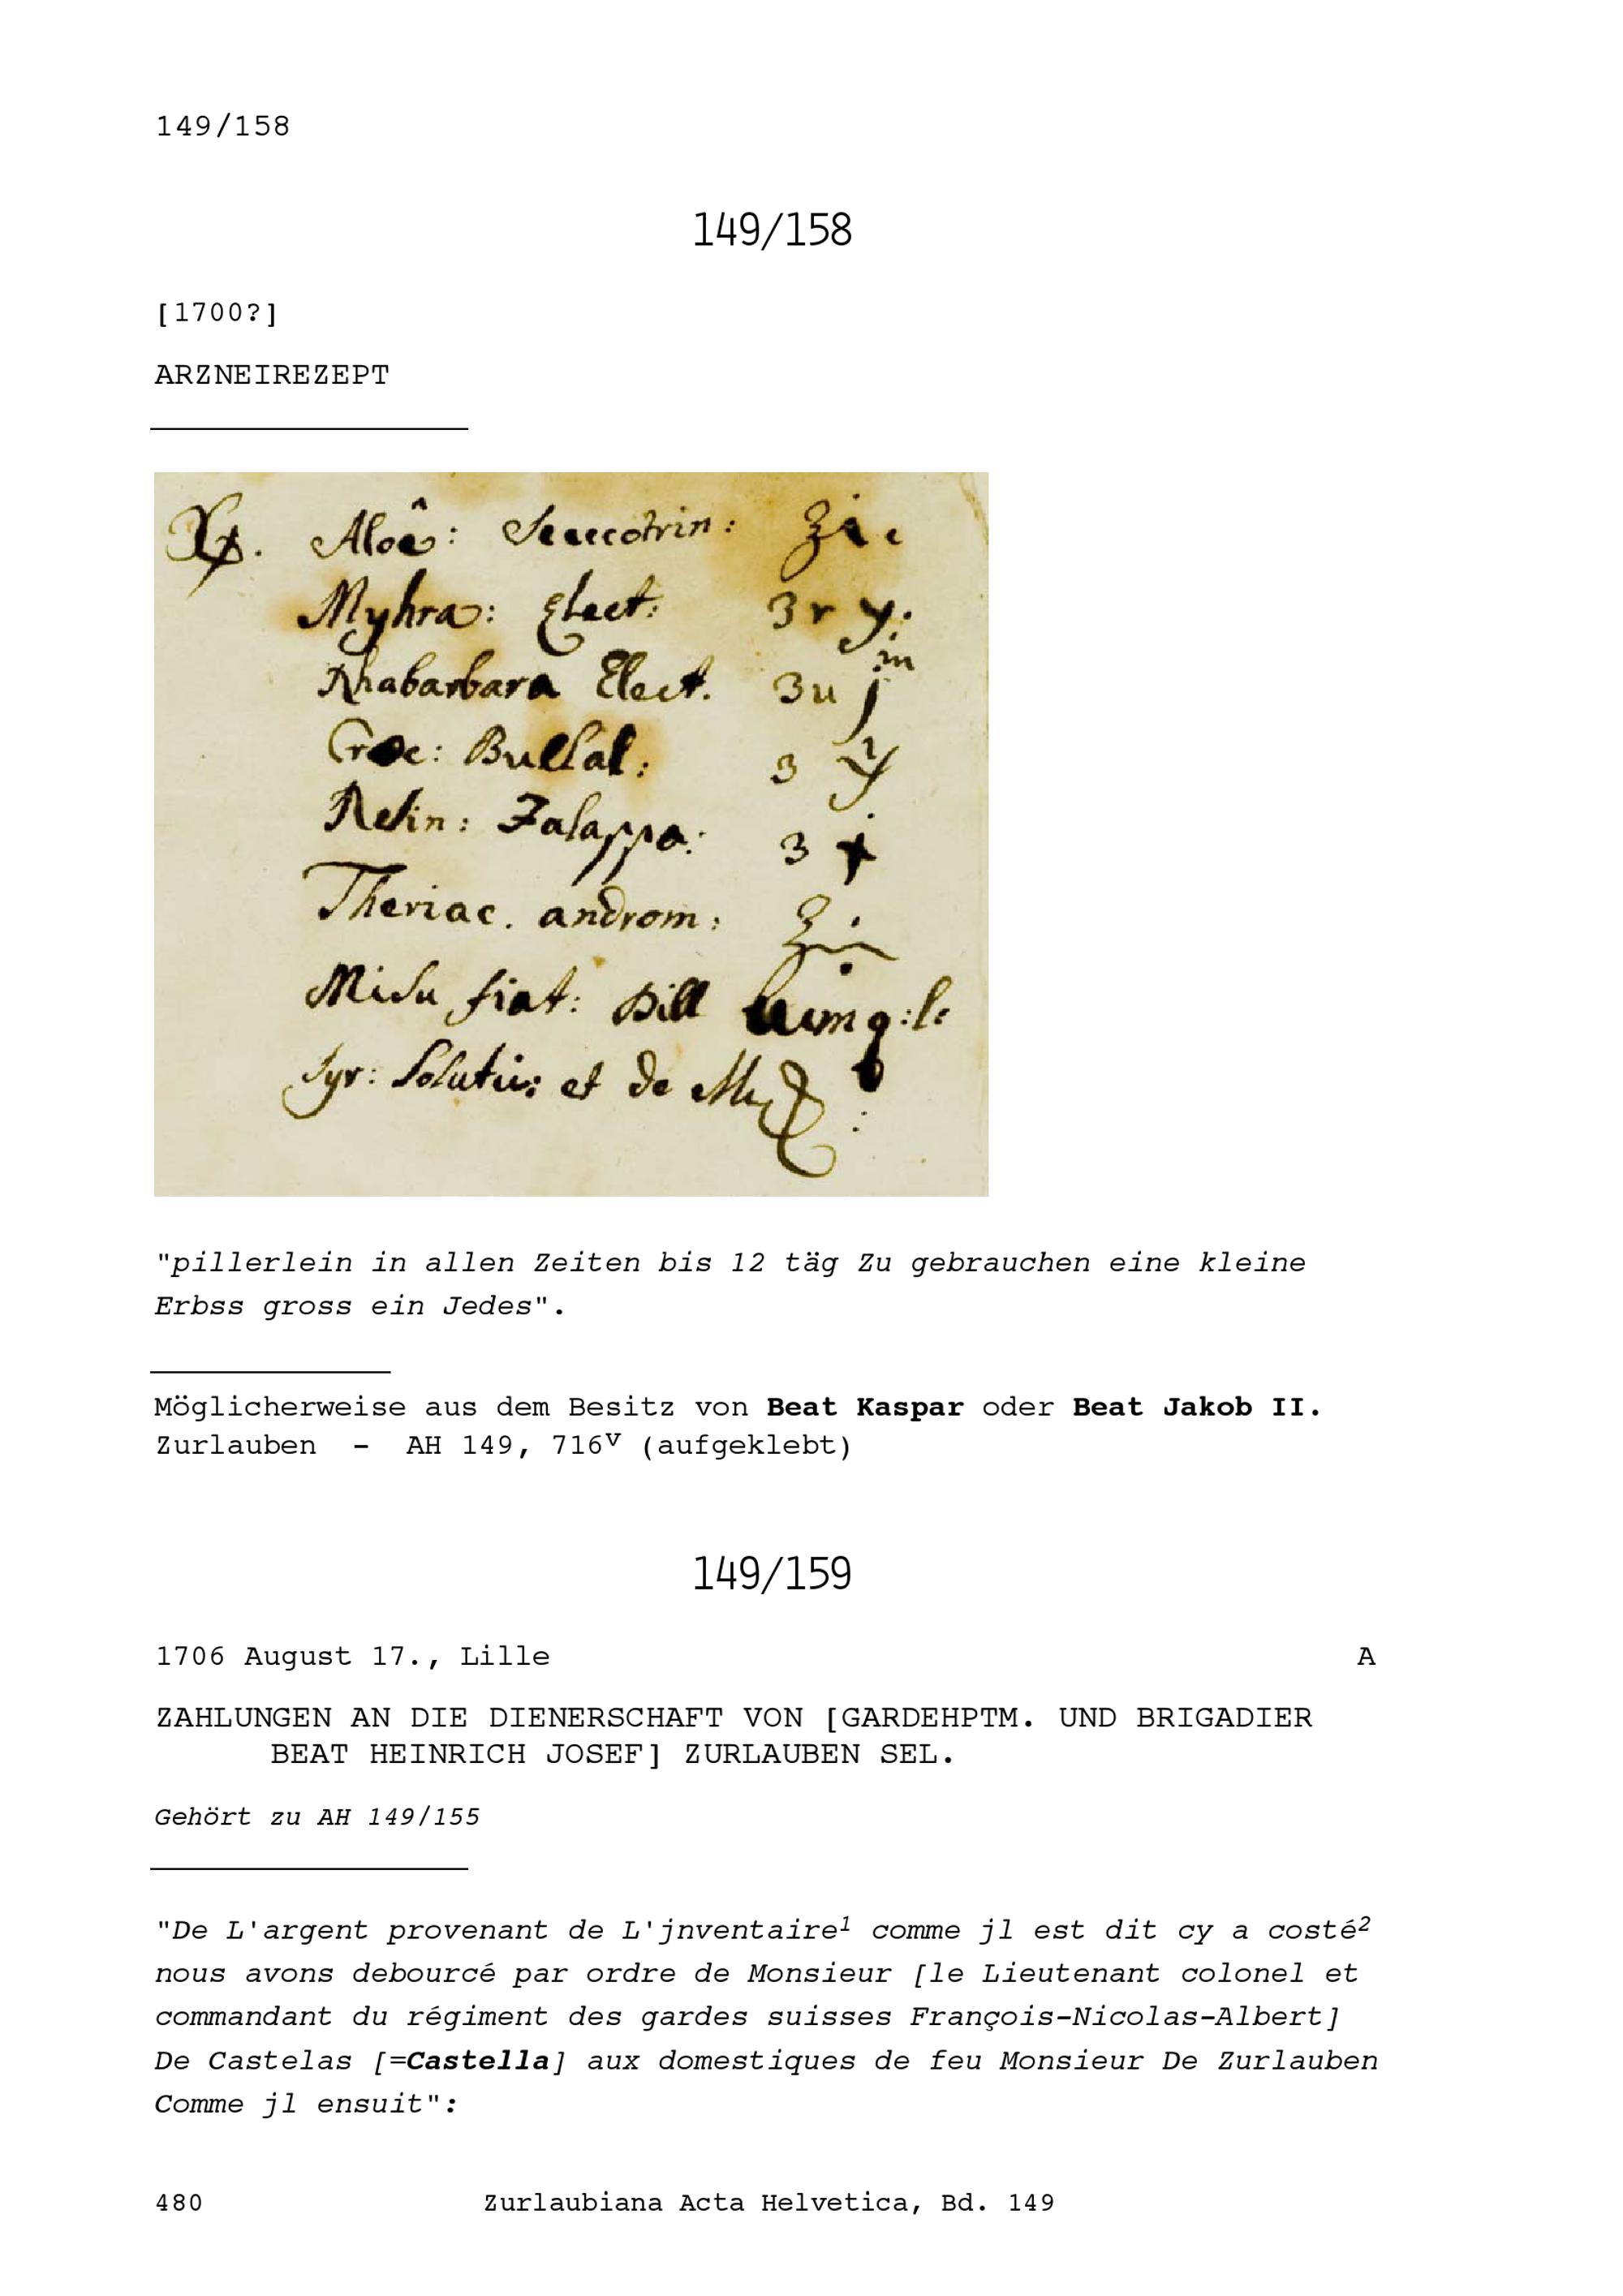 149/158
149/158
[1700?]
ARZNEIREZEPT
Aloê: Succotrin: ʒi.
Myhra: Elect:
Rhabarbara Elect.
Croc:
Resin: Jalappa:
Theriac. androm:
fiat: Pill
Syr: Solutiu: et de
"pillerlein in allen Zeiten bis 12 täg Zu gebrauchen eine kleine
Erbss gross ein Jedes".
Möglicherweise aus dem Besitz von Beat Kaspar oder Beat Jakob II.
Zurlauben – AH 149, 716ᵛ (aufgeklebt)
149/159
1706 August 17., Lille A
ZAHLUNGEN AN DIE DIENERSCHAFT VON [GARDEHPTM. UND BRIGADIER
BEAT HEINRICH JOSEF] ZURLAUBEN SEL.
Gehört zu AH 149/155
"De L'argent provenant de L'jnventaire¹ comme jl est dit cy a costé²
nous avons debourcé par ordre de Monsieur [le Lieutenant colonel et
commandant du régiment des gardes suisses François-Nicolas-Albert]
De Castelas [=Castella] aux domestiques de feu Monsieur De Zurlauben
Comme jl ensuit":
480 Zurlaubiana Acta Helvetica, Bd. 149